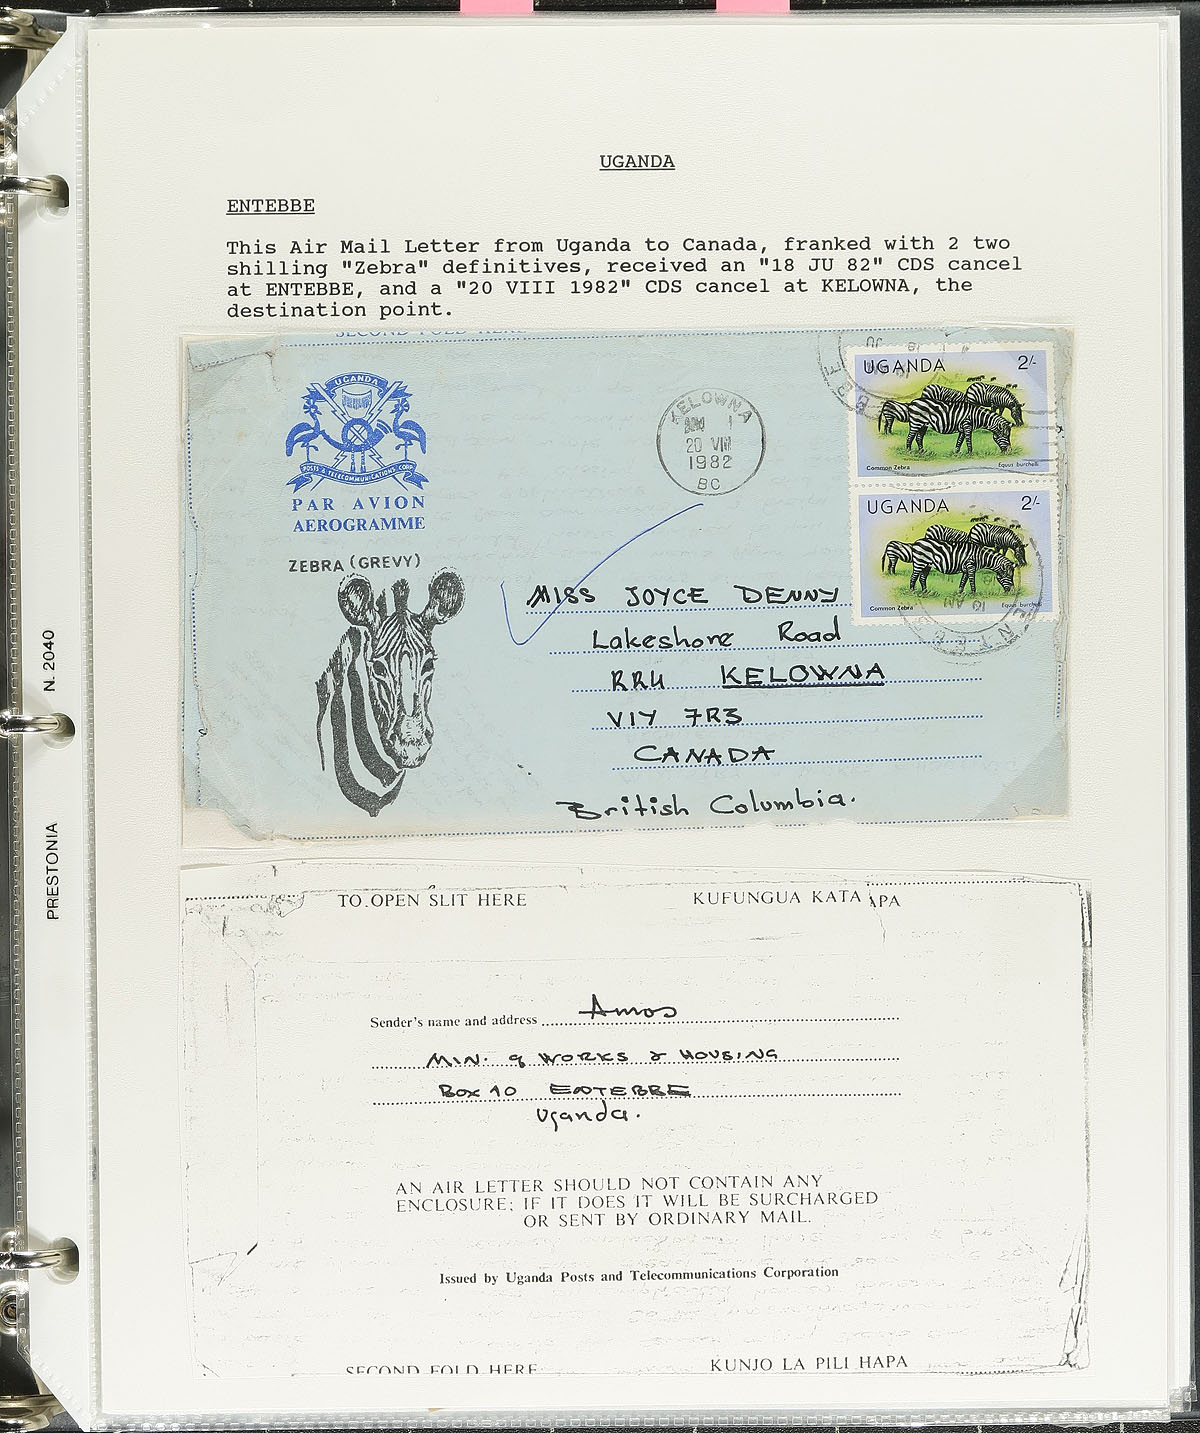 UGANDA
ENTEBBE
This Air Mail Letter from Uganda to Canada, franked with 2 two
shilling "Zebra" definitives, received an "18 JU 82" CDS cancel
at ENTEBBE, and a "20 VIII 1982" CDS cancel at KELOWNA, the
destination point.
SECOND FOLD HERE
UGANDA
POSTS & TELECOMMUNICATIONS CORP.
PAR AVION
AEROGRAMME
ZEBRA (GREVY)
KELOWNA
20 VIII
1982
BC
UGANDA 2/-
Common Zebra Equus burchelli
UGANDA 2/-
Common Zebra Equus burchelli
10 AM
MISS JOYCE DENNY
Lakeshore Road
RR4 KELOWNA
V1Y 7R3
CANADA
British Columbia.
TO OPEN SLIT HERE KUFUNGUA KATA APA
Sender's name and address Amos
MIN. of WORKS & HOUSING
Box 10 ENTEBBE
Uganda.
AN AIR LETTER SHOULD NOT CONTAIN ANY
ENCLOSURE; IF IT DOES IT WILL BE SURCHARGED
OR SENT BY ORDINARY MAIL.
Issued by Uganda Posts and Telecommunications Corporation
SECOND FOLD HERE KUNJO LA PILI HAPA
PRESTONIA N. 2040